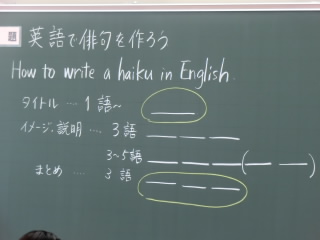 題 英語で俳句を作ろう
How to write a haiku in English.
タイトル … 1語~
イメージ、説明 … 3語
3~5語 ( )
まとめ … 3語